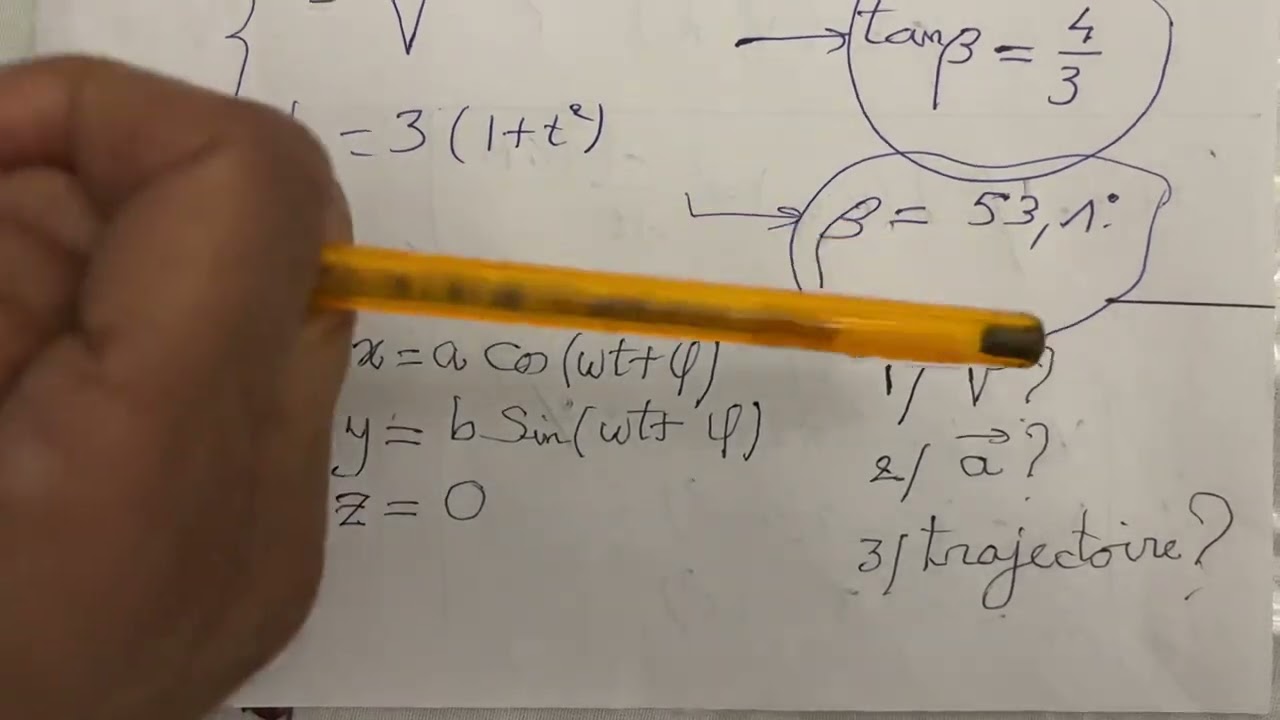 = V
tan β = 4/3
= 3 (1+t²)
β = 53,1°
x = a cos(ωt+φ)
y = b Sin(ωt+ φ)
z = 0
1/ V ?
2/ a⃗ ?
3/ trajectoire ?